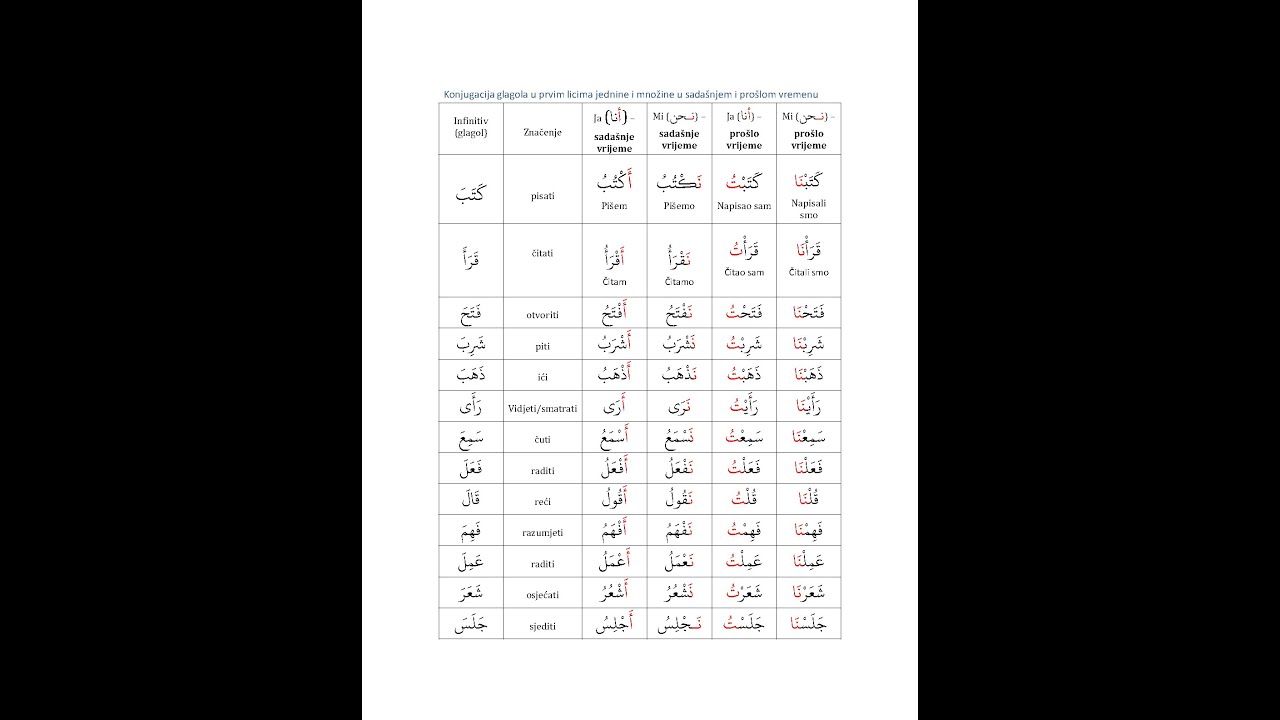 Konjugacija glagola u prvim licima jednine i množine u sadašnjem i prošlom vremenu
Infinitiv (glagol) Značenje Ja (أنا) – sadašnje vrijeme Mi (نـحن) – sadašnje vrijeme Ja (أنا) – prošlo vrijeme Mi (نـحن) – prošlo vrijeme
كَتَبَ pisati أَكْتُبُ Pišem نَكْتُبُ Pišemo كَتَبْتُ Napisao sam كَتَبْنَا Napisali smo
قَرَأَ čitati أَقْرَأُ Čitam نَقْرَأُ Čitamo قَرَأْتُ Čitao sam قَرَأْنَا Čitali smo
فَتَحَ otvoriti أَفْتَحُ نَفْتَحُ فَتَحْتُ فَتَحْنَا
شَرِبَ piti أَشْرَبُ نَشْرَبُ شَرِبْتُ شَرِبْنَا
ذَهَبَ ići أَذْهَبُ نَذْهَبُ ذَهَبْتُ ذَهَبْنَا
رَأَى Vidjeti/smatrati أَرَى نَرَى رَأَيْتُ رَأَيْنَا
سَمِعَ čuti أَسْمَعُ نَسْمَعُ سَمِعْتُ سَمِعْنَا
فَعَلَ raditi أَفْعَلُ نَفْعَلُ فَعَلْتُ فَعَلْنَا
قَالَ reći أَقُولُ نَقُولُ قُلْتُ قُلْنَا
فَهِمَ razumjeti أَفْهَمُ نَفْهَمُ فَهِمْتُ فَهِمْنَا
عَمِلَ raditi أَعْمَلُ نَعْمَلُ عَمِلْتُ عَمِلْنَا
شَعَرَ osjećati أَشْعُرُ نَشْعُرُ شَعَرْتُ شَعَرْنَا
جَلَسَ sjediti أَجْلِسُ نَـجْلِسُ جَلَسْتُ جَلَسْنَا